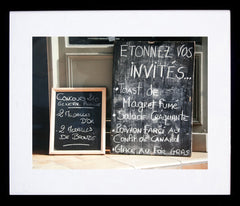 CONCOURS
GÉNÉRAL
2 MÉDAILLES
D'OR
2 MÉDAILLES
DE BRONZE
ETONNEZ VOS
INVITÉS...
• TOAST DE
MAGRET FUMÉ
SALADE CRAQUANTE
• POIVRON FARCI AU
CONFIT DE CANARD
• GLACE AU FOIE GRAS